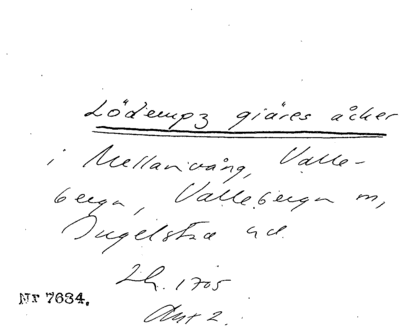 Lödempz giäres åcker
i Mellanvång, Valle-
berga, Valleberga sn,
Ingelstad hd.
Lh. 1705
Akt 2.
Nr 7634.